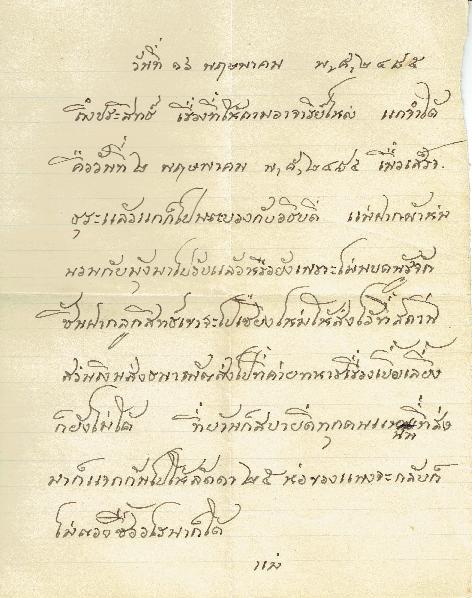 วันที่ ๑๖ พฤษภาคม พ,ศ,๒๔๘๕
ถึงประสิทธิ์ เรื่องที่ให้ถามอาจารย์ใหญ่ แกจำได้
คือวันที่ ๒ พฤษภาคม พ,ศ,๒๔๘๕ เมื่อเสร็จ
ธุระแล้วแกก็ไป แม่ฝากผ้าห่ม
นวมกับมุ้งมาไปรับแล้วหรือยังเพราะไม่พบ
ฉันฝากลูกศิษย์เขาจะไปเชียงใหม่ให้ส่งไว้ที่สถานี
ส่วนเงินส่งธนาณัติส่งไปที่ค่ายทหารเรื่องเบี้ยเลี้ยง
ก็ยังไม่ได้ ที่บ้านก็สบายดีทุกคน ที่ส่ง
มาก็แจกกันไปให้ลัดดา ๒๕ ห่อของแพงจะกลับก็
ไม่ต้องซื้ออะไรมาก็ได้
แม่